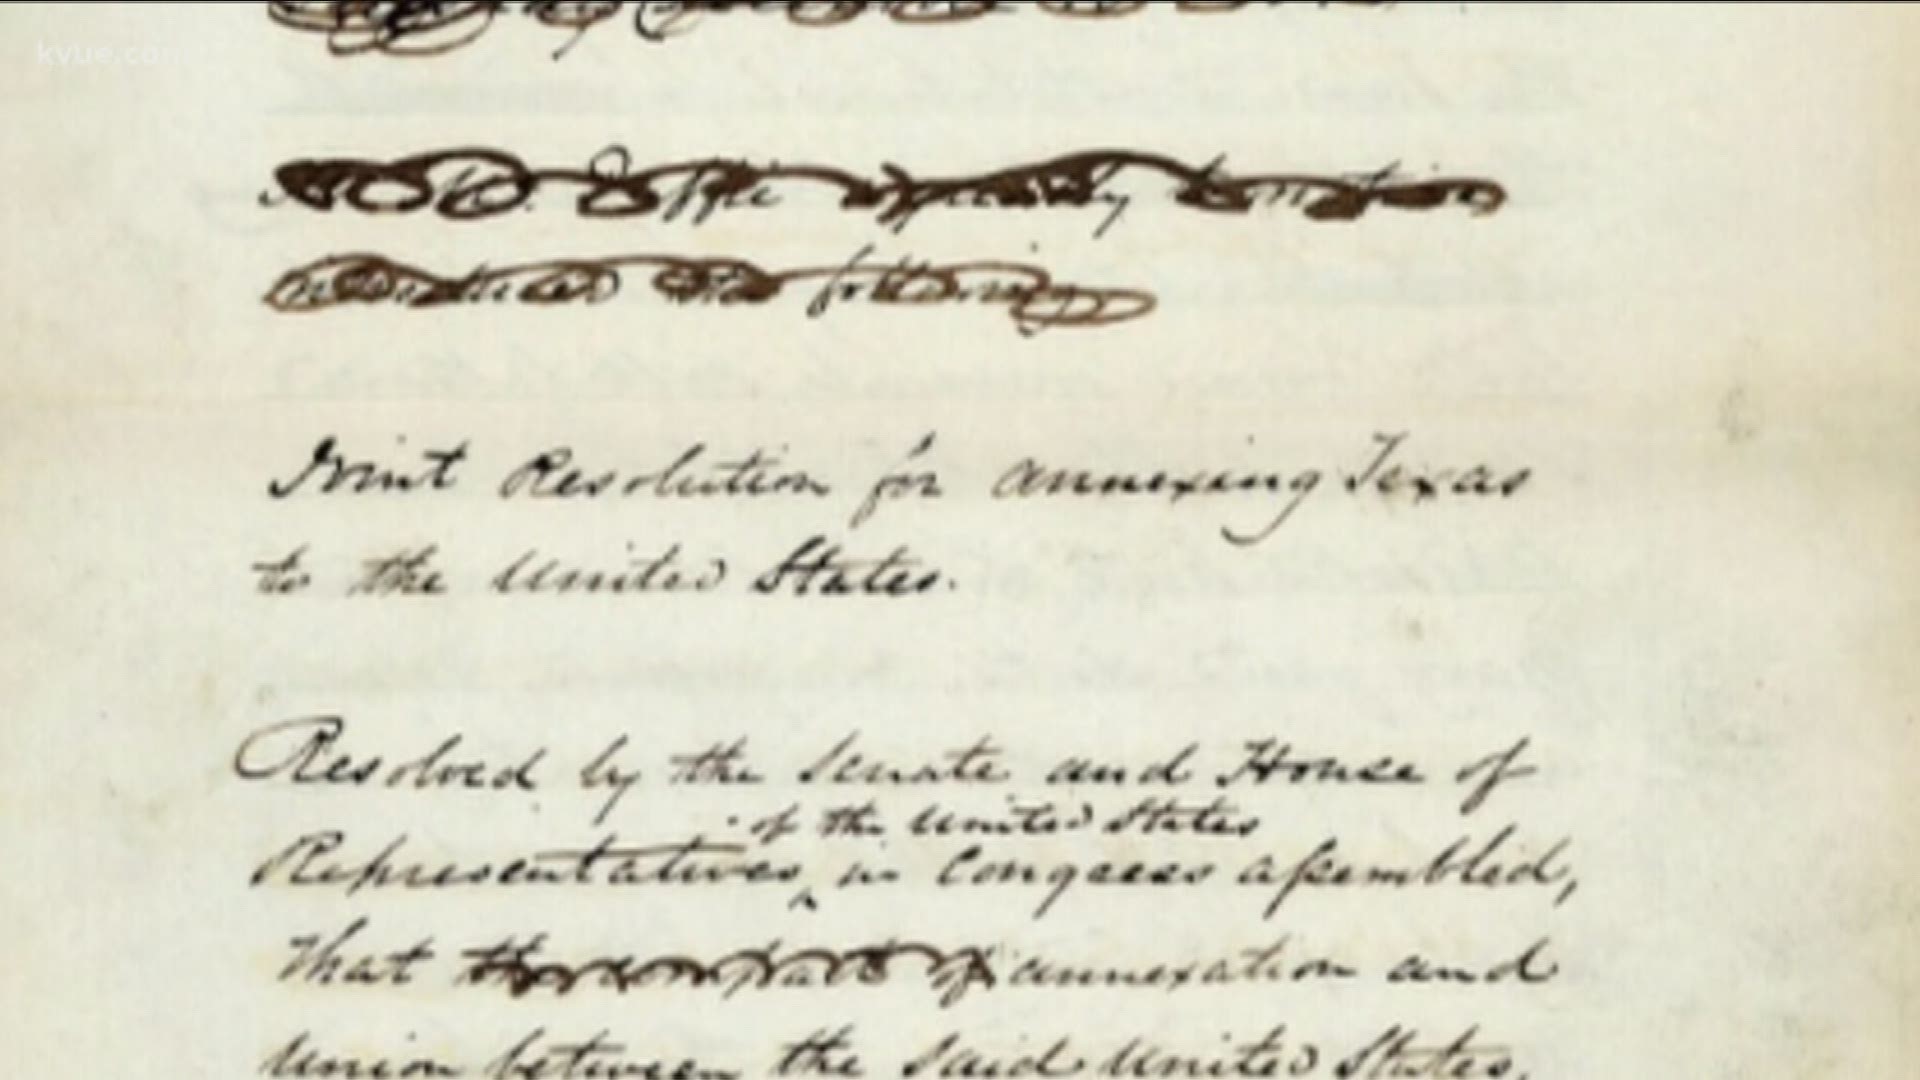 kvue.com
following
Joint Resolution for annexing Texas
to the United States.
Resolved by the Senate and House of
of the United States
Representatives ‸ in Congress assembled,
That the compact of annexation and
Union between the said United States,